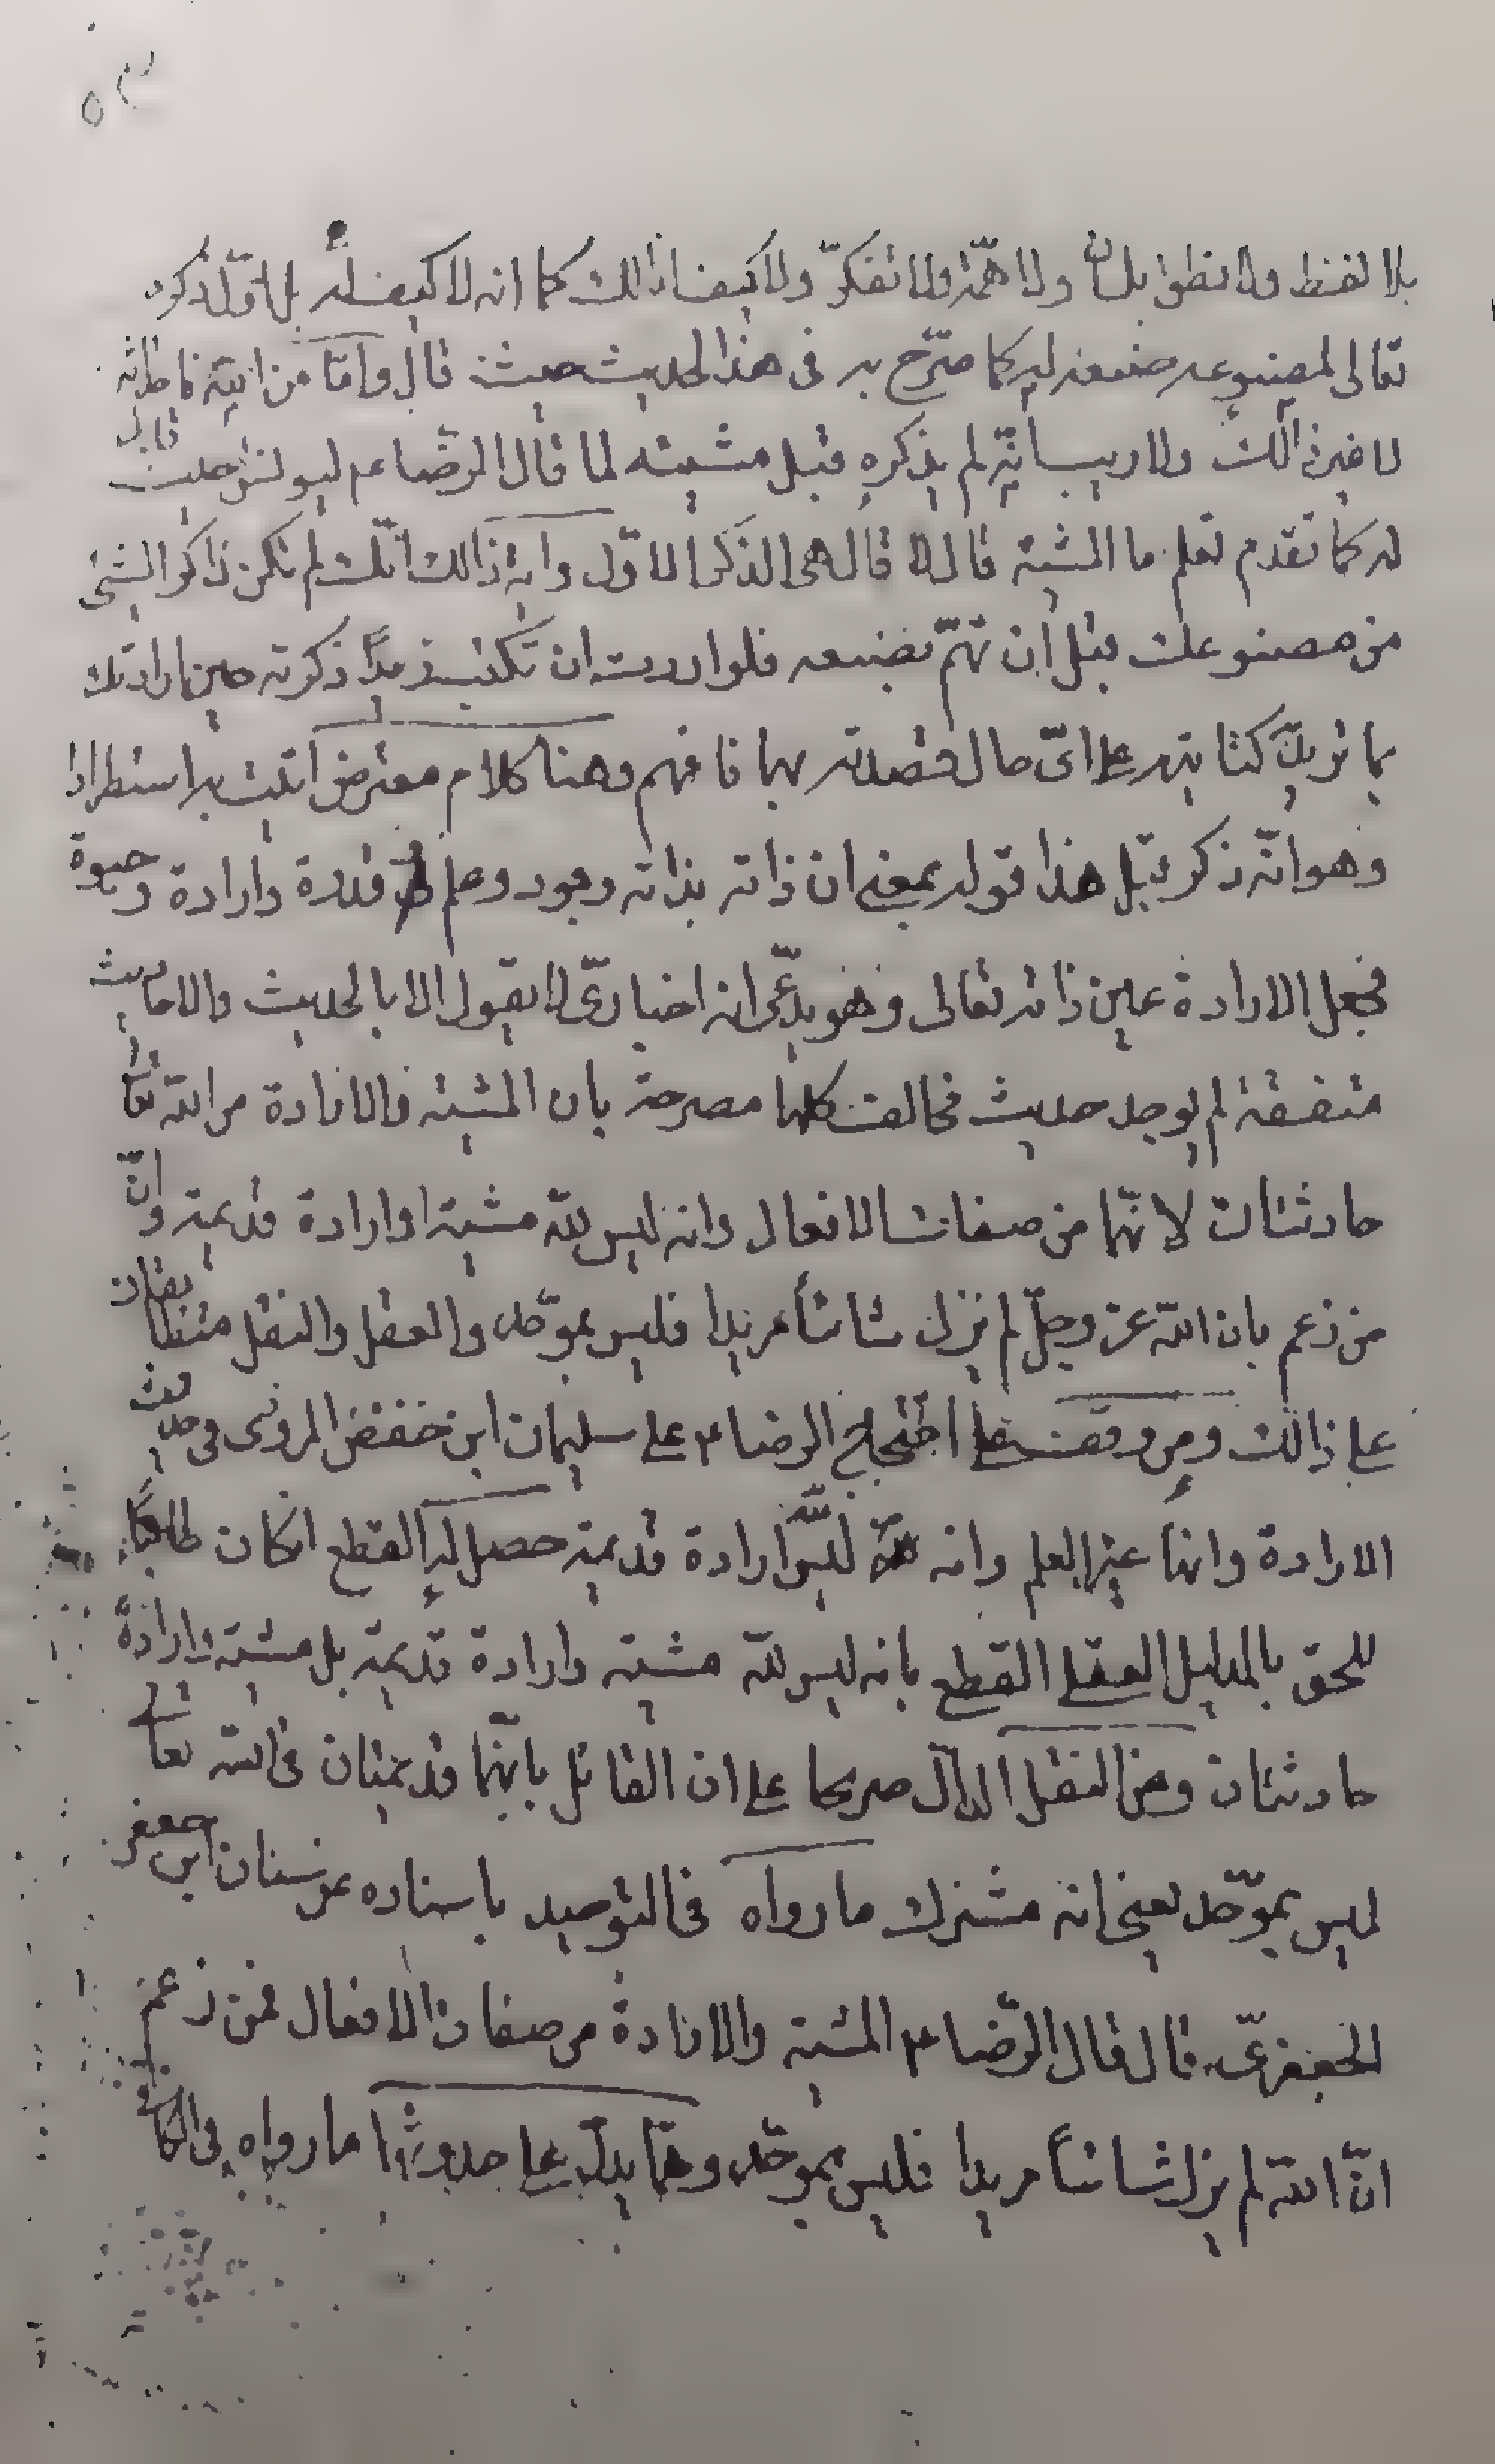 بلا لفظ ولا نطق بلسان ولا همّة ولا تفكّر ولا كيف لذالك كما انه لا كيف له بل اوّل ذكره
تعالى لمصنوعه صنعه له كما صرّح به فى هذا الحديث حيث قال وامّا من الله فاحداثه
لا غير ذالك ولا ريب انّه لم يذكره قبل مشيته لما قال الرضا عم ليونس حيث قال
له كما تقدم تعلم ما المشية قال لا قال هى الذكر الاوّل واية ذالك انّك لم تكن ذاكر الشئ
من مصنوعك قبل ان تهمّ بصنعه فلو اردت ان تكتب زيدًا ذكرته حين ارادتك
بما تريد كتابته على اىّ حال قصدته بها فافهم وهنا كلام معترض اتيت به استطرادا
وهو انّه ذكر قبل هذا قوله بمعنى ان ذاته بذاته وجود وعلم وقدرة وارادة وحيوة
فجعل الارادة عين ذاته تعالى وهو يدّعى انه اخبارىّ لا يقول الا بالحديث والاحاديث
متفقة لم يوجد حديث مخالف كلها مصرحة بان المشية والارادة من الله تعا
حادثتان لانّهما من صفات الافعال وانه ليس لله مشية او ارادة قديمة وانّ
من زعم بان الله عز وجلّ لم يزل شائيا مريدا فليس بموحّد والعقل والنقل متطابقان
على ذالك ومن وقف على احتجاج الرضا ع على سليمان ابن حفض المروزى فى حدوث
الارادة وانها غير العلم وانه ليس لله ارادة قديمة حصل له القطع ان كان طالبًا
للحق بالدليل العقلى القطع بانه ليس لله مشية وارادة قديمة بل مشية وارادة
حادثتان ومن النقل الدالّ صريحا على ان القائل بانّهما قديمتان فى الله تعالى
ليس بموحّد يعنى انه مشرك ما رواه فى التوحيد باسناده عن سنان ابن جعفر
الجعفرىّ قال قال الرّضا ع المشية والارادة من صفات الافعال فمن زعم
انّ الله لم يزل شائياً مريدا فليس بموحّد وممّا يدلّ على حدوثها ما رواه فى الكافى